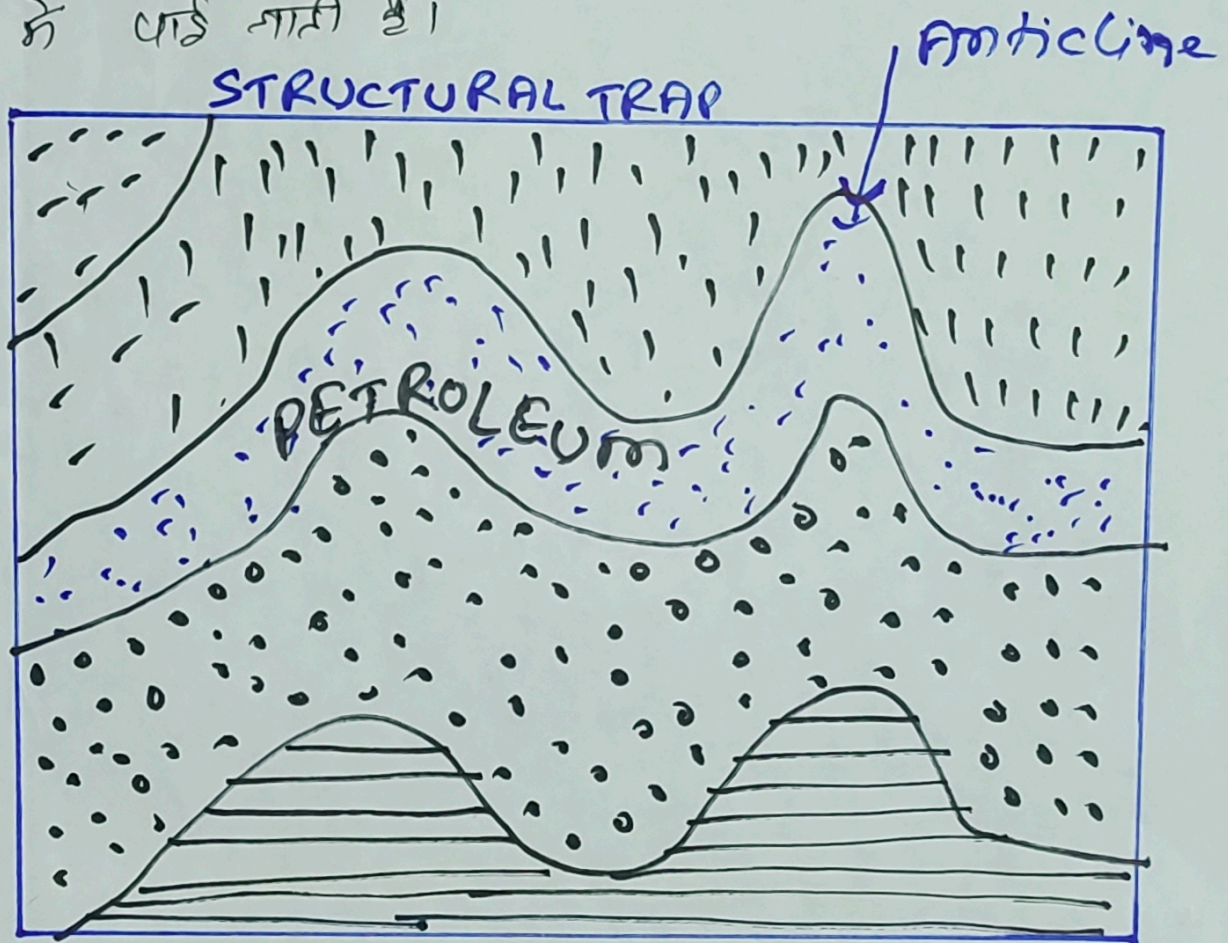 में पाई जाती है।
Anticline
STRUCTURAL TRAP
PETROLEUM